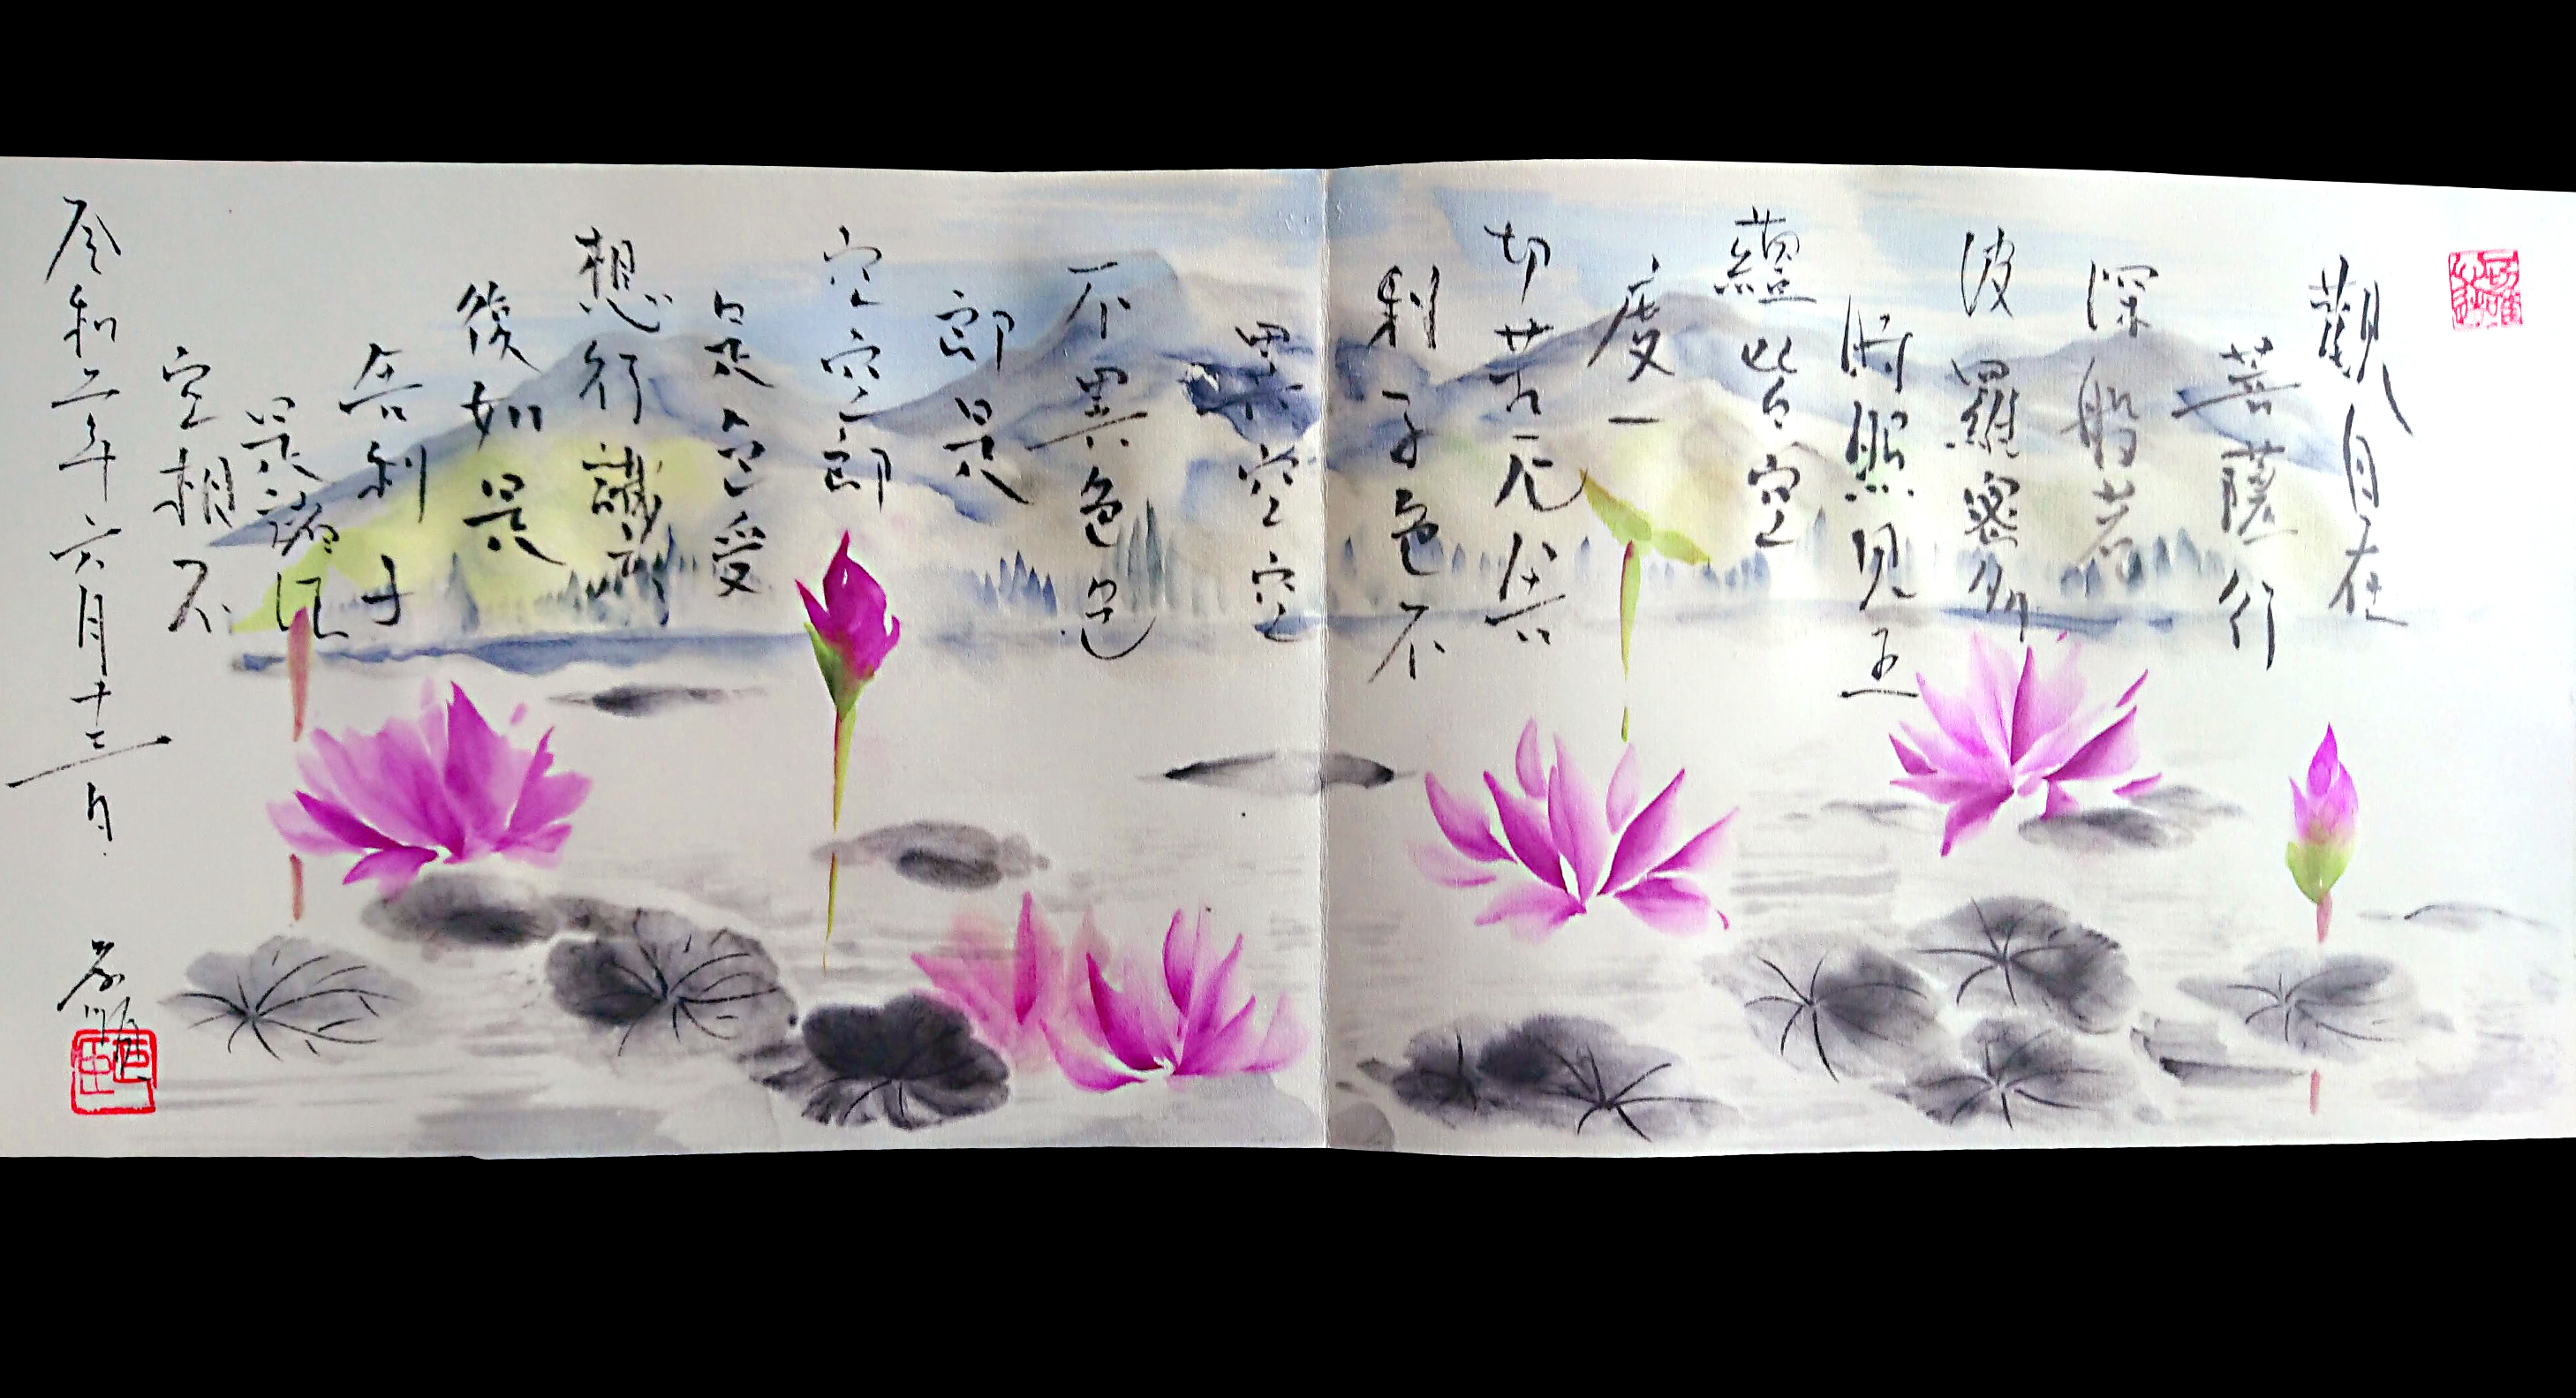 觀自在
菩薩行
深般若
波羅蜜多
時照見五
蘊皆空
度一
切苦厄舍
利子色不
異空空
不異色色
即是
空空即
是色受
想行識亦
復如是
舍利子
是諸法
空相不
令和二年六月十三日